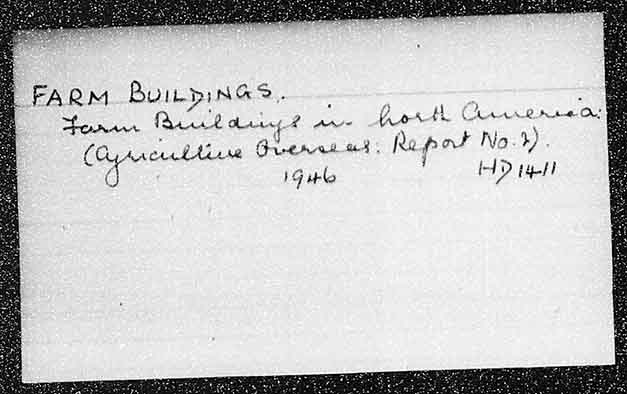 FARM BUILDINGS.
Farm Buildings in North America:
(Agriculture Overseas: Report No. 2).
1946 HD 1411